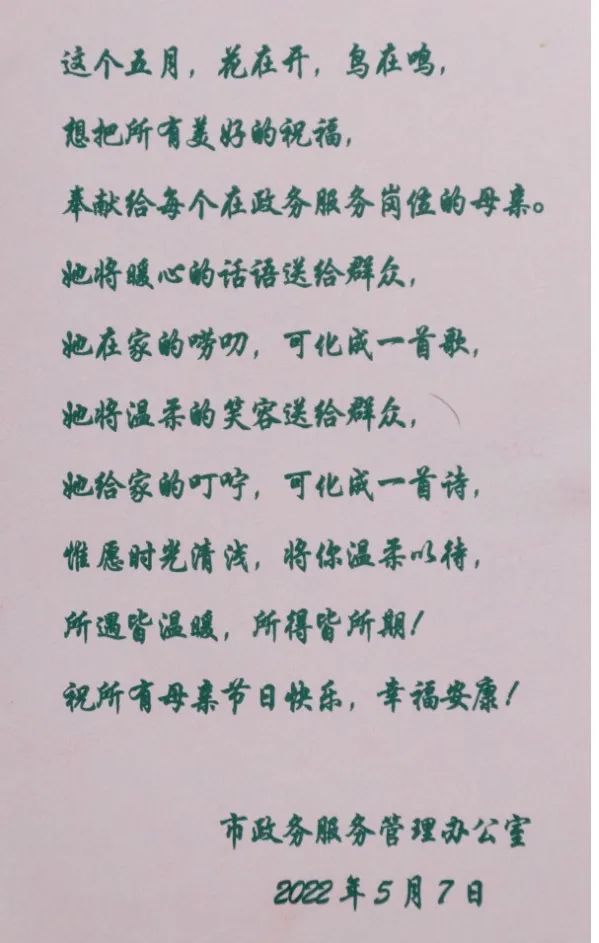 这个五月，花在开，鸟在鸣，
想把所有美好的祝福，
奉献给每个在政务服务岗位的母亲。
她将暖心的话语送给群众，
她在家的唠叨，可化成一首歌，
她将温柔的笑容送给群众，
她给家的叮咛，可化成一首诗，
惟愿时光清浅，将你温柔以待，
所遇皆温暖，所得皆所期！
祝所有母亲节日快乐，幸福安康！
市政务服务管理办公室
2022年5月7日